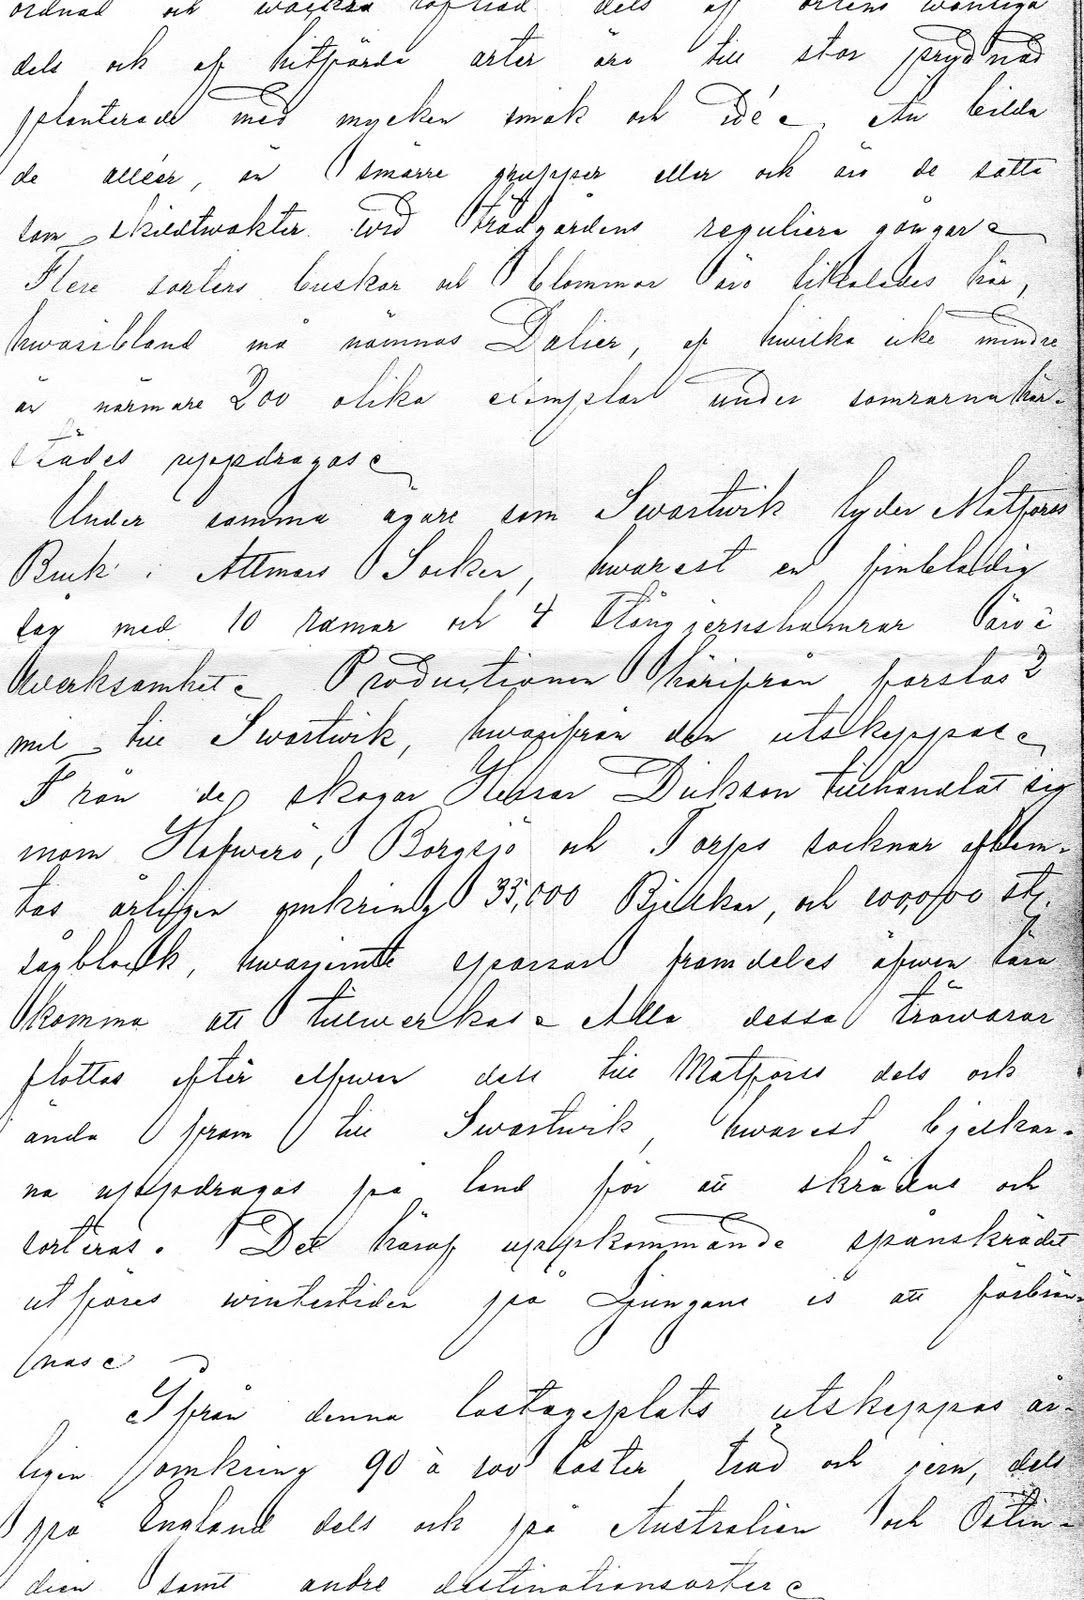 ordnad och wackra löfträd dels af ortens wanliga
dels och af hitförda arter äro till stor prydnad
planterade med mycken smak och idée. Än bilda
de alléer, än smärre grupper eller och äro de satta
som skildtwakter wid trädgårdens reguliera gångar.
Flere sorters buskar och blommor äro likaledes här,
hwaribland må nämnas Dalier, af hwilka icke mindre
än närmare 200 olika exemplar under somrarna här-
städes uppdragas.
Under samma ägare som Swartwik lyder Matfors
Bruk i Attmars Socken, hwarest en finbladig
såg med 10 ramar och 4 stångjernshamrar äro i
werksamhet. Productionen härifrån forslas 2
mil till Swartwik, hwarifrån den utskeppas.
Från de skogar Herrar Dickson tillhandlat sig
inom Hafwerö, Borgsjö och Torps socknar afhem-
tas årligen omkring 35,000 Bjelkar, och 100,000 st.
sågblock, hwarjemte sparrar framdeles äfwen lära
komma att tillwerkas. Alla dessa träwaror
flottas efter elfwen dels till Matfors dels och
ända fram till Swartwik, hwarest bjelkar-
na uppdragas på land för att skrädas och
sorteras. Det häraf uppkommande spånskrädet
utföres wintertiden på Ljungans is att förbrän-
nas.
Ifrån denna lastageplats utskeppas år-
ligen omkring 90 à 100 laster träd och jern, dels
på England dels och på Australien och Ostin-
dien samt andre destinationsorter.